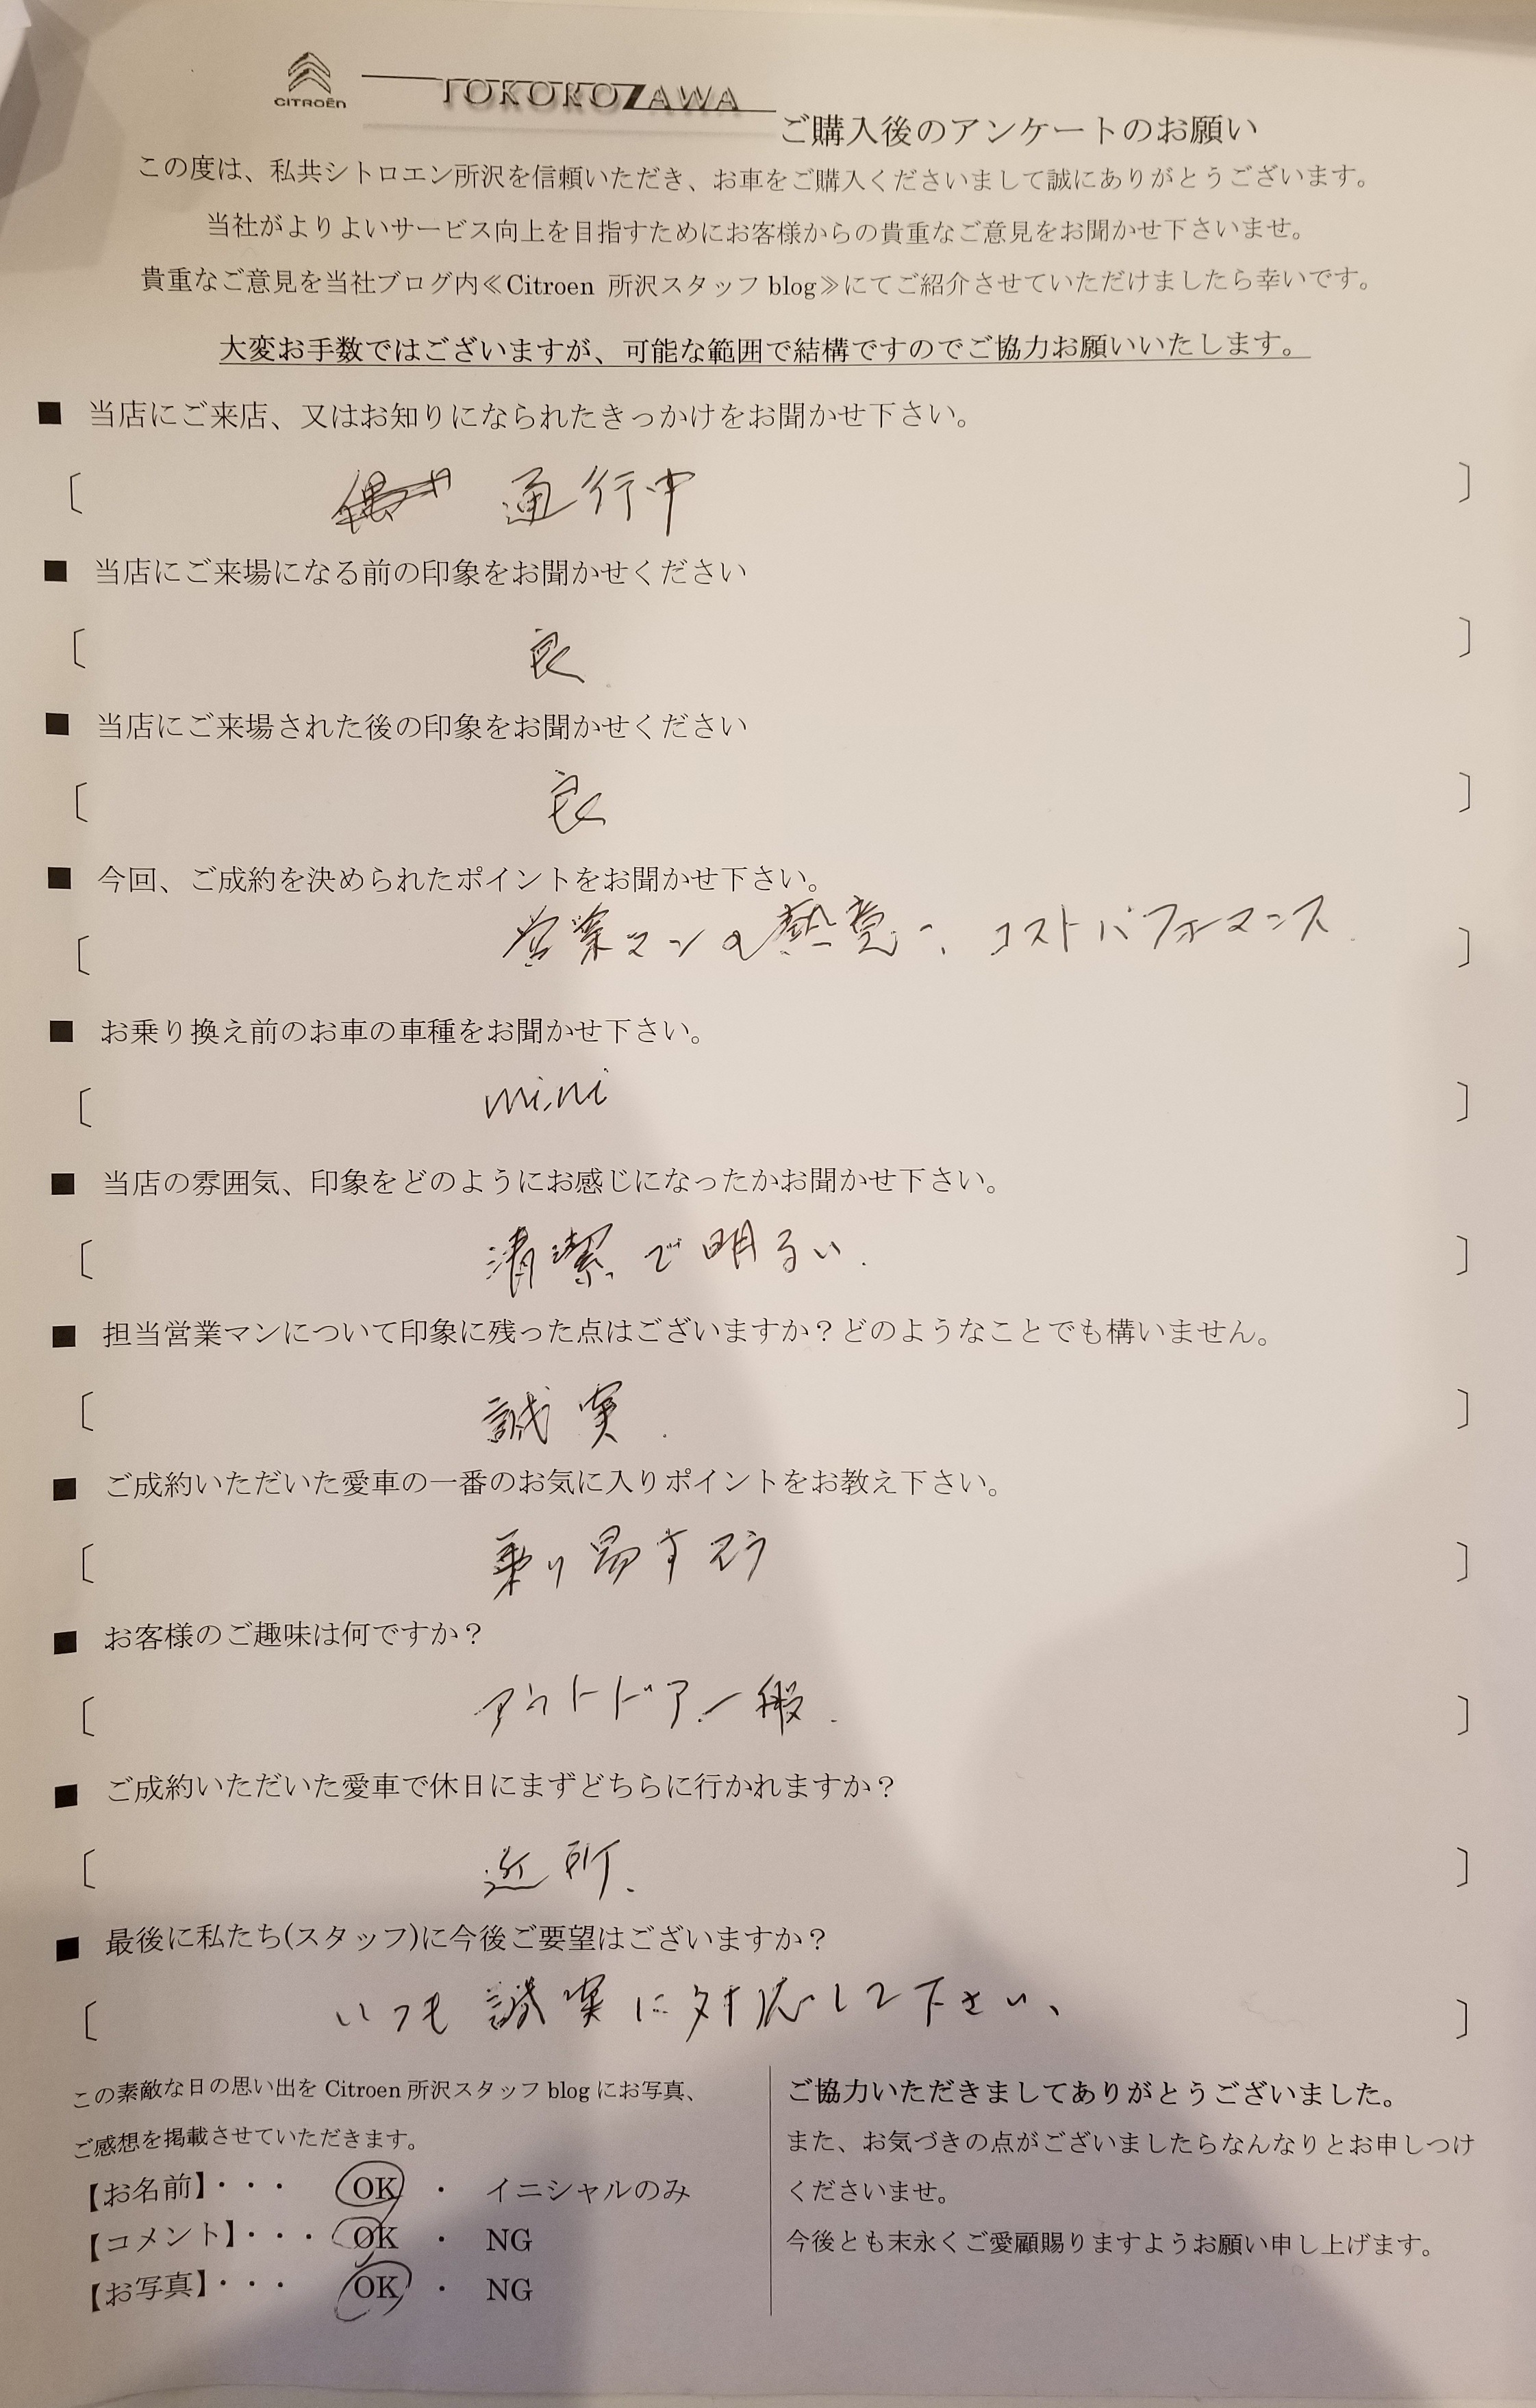 CITROËN
TOKOROZAWA
ご購入後のアンケートのお願い
この度は、私共シトロエン所沢を信頼いただき、お車をご購入くださいまして誠にありがとうございます。
当社がよりよいサービス向上を目指すためにお客様からの貴重なご意見をお聞かせ下さいませ。
貴重なご意見を当社ブログ内≪Citroen 所沢スタッフ blog≫にてご紹介させていただけましたら幸いです。
大変お手数ではございますが、可能な範囲で結構ですのでご協力お願いいたします。
■ 当店にご来店、又はお知りになられたきっかけをお聞かせ下さい。
〔 通行中 〕
■ 当店にご来場になる前の印象をお聞かせください
〔 良 〕
■ 当店にご来場された後の印象をお聞かせください
〔 良 〕
■ 今回、ご成約を決められたポイントをお聞かせ下さい。
〔 営業マンの熱意、コストパフォーマンス 〕
■ お乗り換え前のお車の車種をお聞かせ下さい。
〔 mini 〕
■ 当店の雰囲気、印象をどのようにお感じになったかお聞かせ下さい。
〔 清潔で明るい. 〕
■ 担当営業マンについて印象に残った点はございますか？どのようなことでも構いません。
〔 誠実. 〕
■ ご成約いただいた愛車の一番のお気に入りポイントをお教え下さい。
〔 乗り易すそう 〕
■ お客様のご趣味は何ですか？
〔 アウトドア一般. 〕
■ ご成約いただいた愛車で休日にまずどちらに行かれますか？
〔 近所. 〕
■ 最後に私たち(スタッフ)に今後ご要望はございますか？
〔 いつも誠実に対応して下さい、 〕
この素敵な日の思い出を Citroen 所沢スタッフ blog にお写真、
ご感想を掲載させていただきます。
【お名前】・・・ OK ・ イニシャルのみ
【コメント】・・・ OK ・ NG
【お写真】・・・ OK ・ NG
ご協力いただきましてありがとうございました。
また、お気づきの点がございましたらなんなりとお申しつけ
くださいませ。
今後とも末永くご愛顧賜りますようお願い申し上げます。